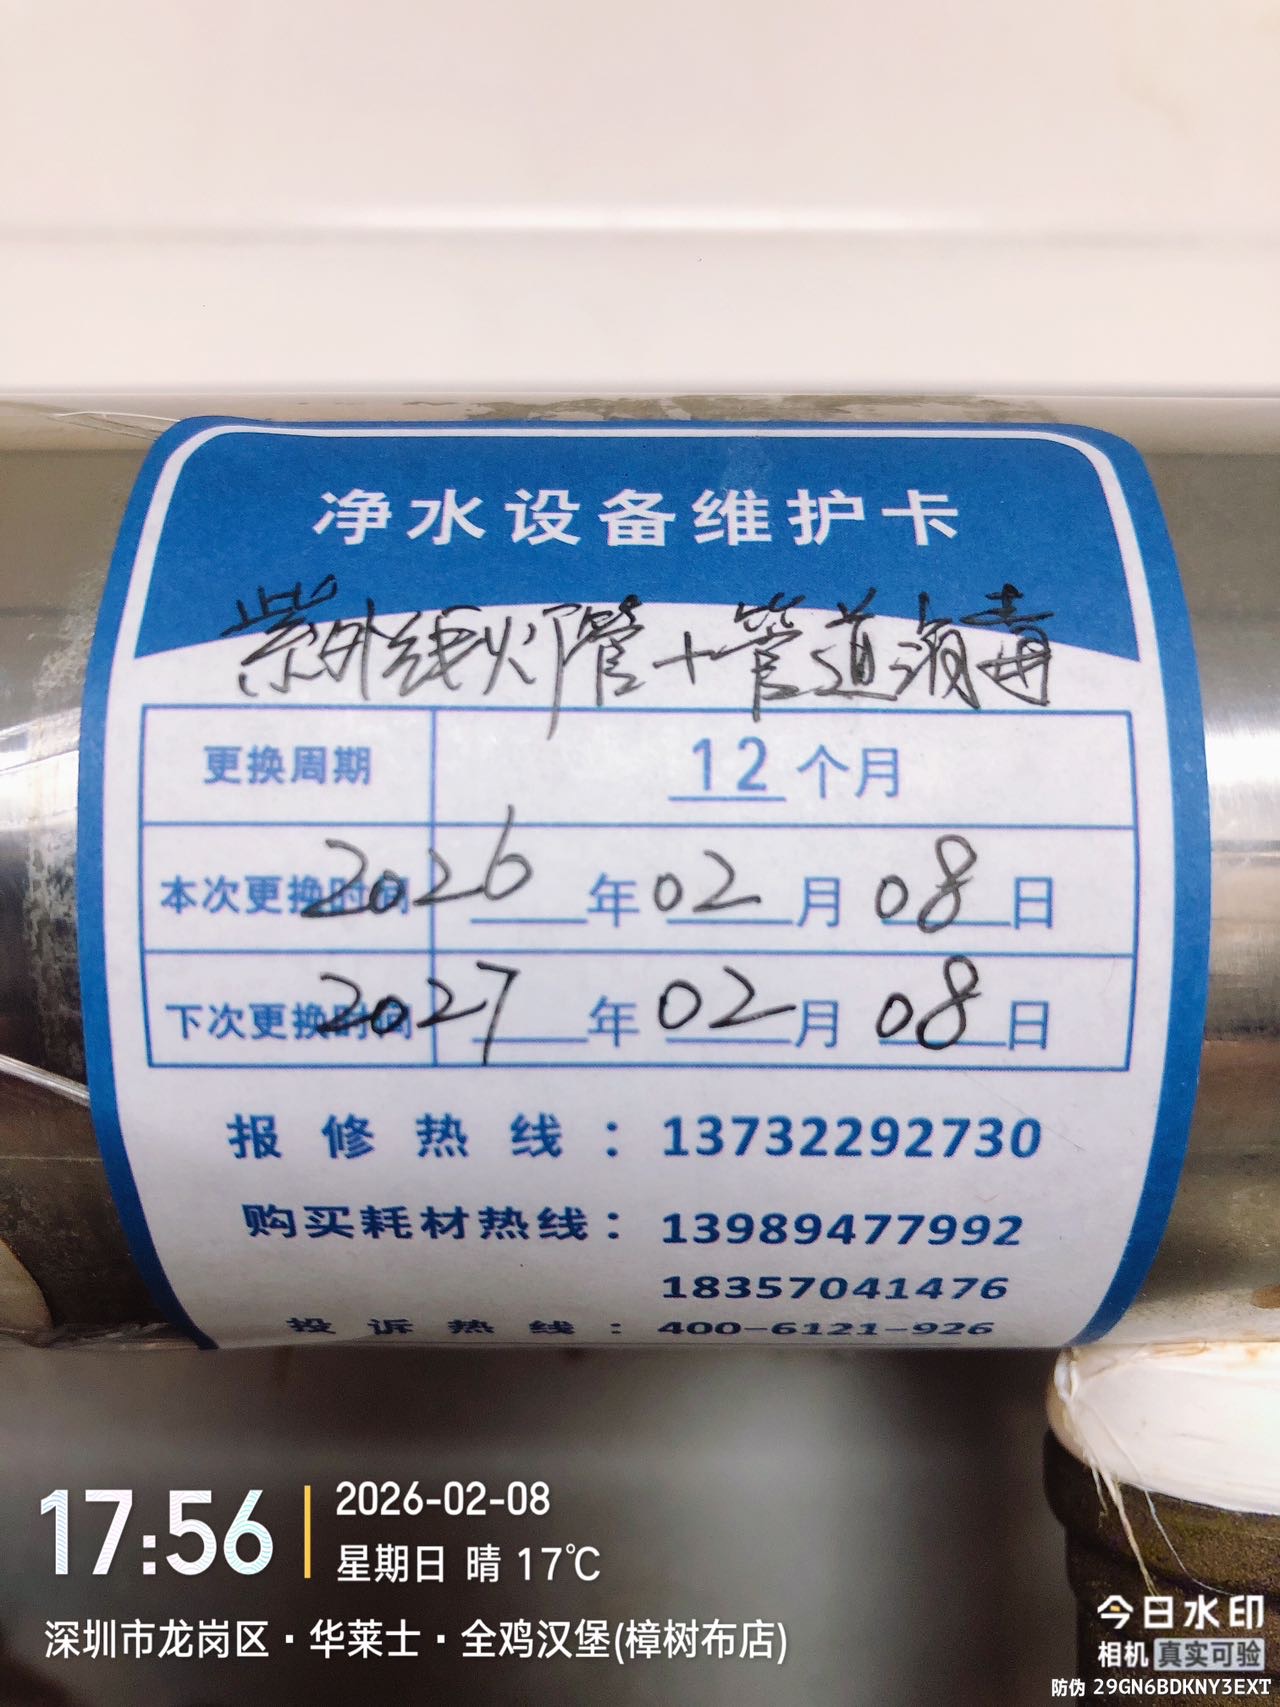 净水设备维护卡
紫外线灯管+管道消毒
更换周期 12个月
本次更换时间 2026年02月08日
下次更换时间 2027年02月08日
报修热线：13732292730
购买耗材热线：13989477992
18357041476
投诉热线：400-6121-926
17:56
2026-02-08
星期日 晴 17℃
深圳市龙岗区·华莱士·全鸡汉堡(樟树布店)
今日水印
相机 真实可验
防伪 29GN6BDKNY3EXT